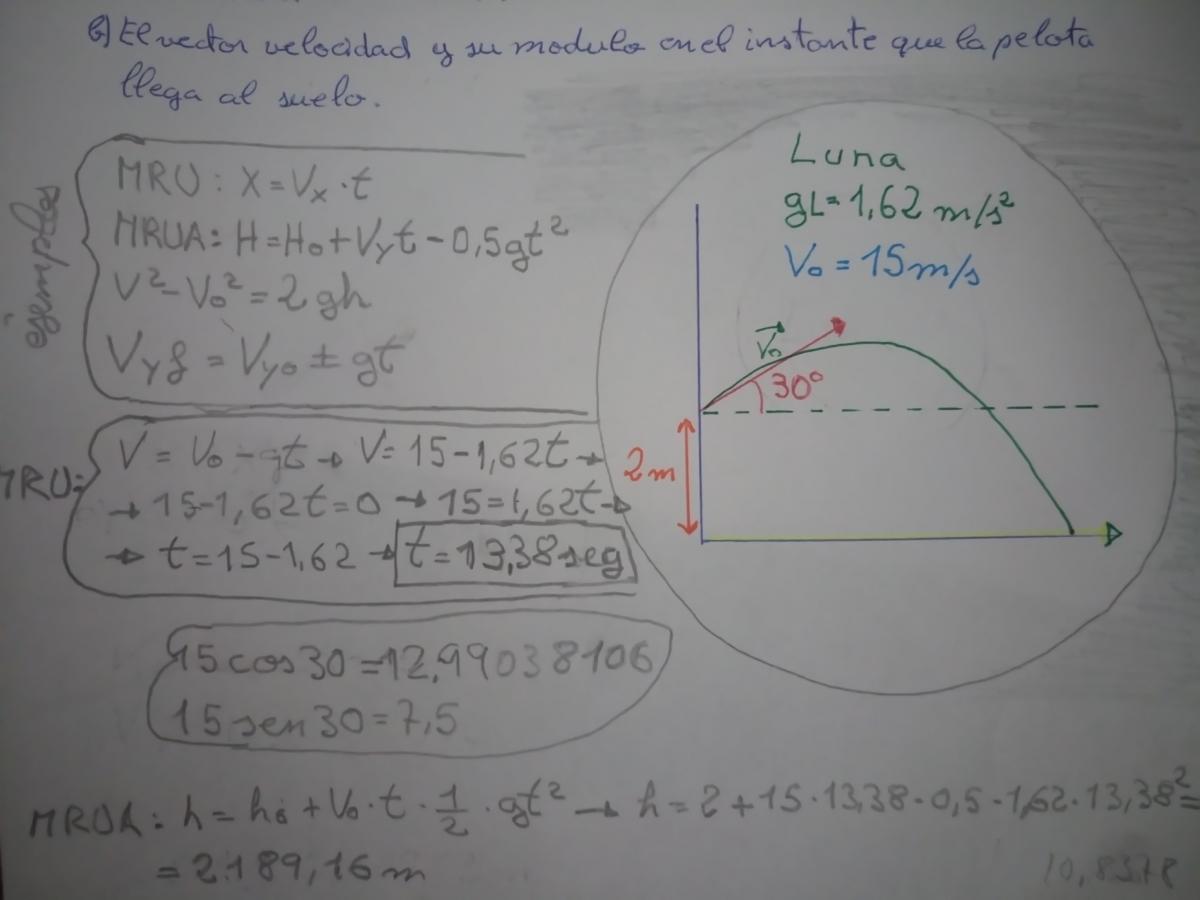 b) El vector velocidad y su modulo en el instante que la pelota
llega al suelo.
ejemplos
MRU: X=Vx·t
MRUA: H=H₀+Vyt-0,5gt²
V²-V₀²=2gh
Vyf = Vy₀ ± gt
Luna
gL=1,62 m/s²
V₀=15m/s
V₀
30°
2m
MRU:
V = V₀-gt → V=15-1,62t →
→ 15-1,62t=0 → 15=1,62t →
→ t=15-1,62 → t=13,38seg
15cos30=12,99038106
15sen30=7,5
MRUA: h=h₀+V₀·t·1/2·gt² → h=2+15·13,38·0,5·1,62·13,38²=
=2.189,16m
10,8378